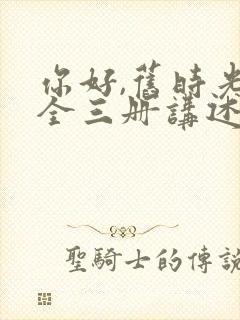 你好,舊時光
全三册講述
聖騎士的傳說